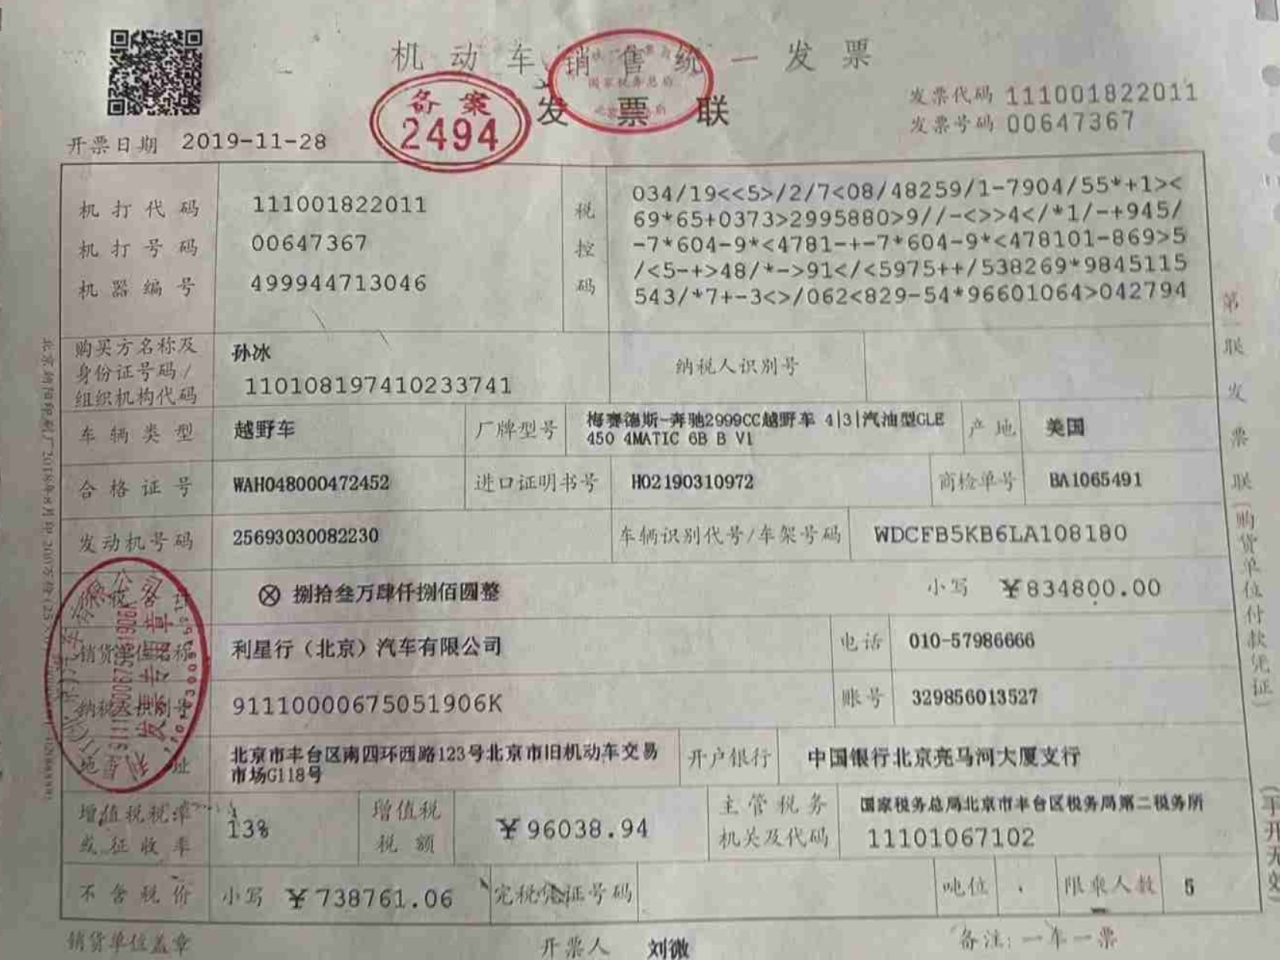 机动车销售统一发票
备案
2494
国家税务总局
发票联
发票代码 111001822011
发票号码 00647367
开票日期 2019-11-28
机打代码 111001822011
机打号码 00647367
机器编号 499944713046
税控码
034/19<<5>/2/7<08/48259/1-7904/55*+1><
69*65+0373>2995880>9//-<>>4</*1/-+945/
-7*604-9*<4781-+-7*604-9*<478101-869>5
/<5-+>48/*->91</<5975++/538269*9845115
543/*7+-3<>/062<829-54*96601064>042794
购买方名称及
身份证号码/
组织机构代码
孙冰
110108197410233741
纳税人识别号
车辆类型 越野车 厂牌型号 梅赛德斯-奔驰2999CC越野车 4|3|汽油型GLE
450 4MATIC 6B B V1
产地 美国
合格证号 WAH048000472452 进口证明书号 H02190310972 商检单号 BA1065491
发动机号码 25693030082230 车辆识别代号/车架号码 WDCFB5KB6LA108180
⊗ 捌拾叁万肆仟捌佰圆整 小写 ¥834800.00
销货单位名称 利星行（北京）汽车有限公司 电话 010-57986666
纳税人识别号 91110000675051906K 账号 329856013527
地址 北京市丰台区南四环西路123号北京市旧机动车交易
市场G118号
开户银行 中国银行北京亮马河大厦支行
增值税税率
或征收率
13%
增值税
税额
¥96038.94
主管税务
机关及代码
国家税务总局北京市丰台区税务局第二税务所
11101067102
不含税价 小写 ¥738761.06 完税凭证号码 吨位 限乘人数 5
销货单位盖章 开票人 刘微 备注:一车一票
第一联 发票联(购货单位付款凭证)
(手开无效)
发票专用章